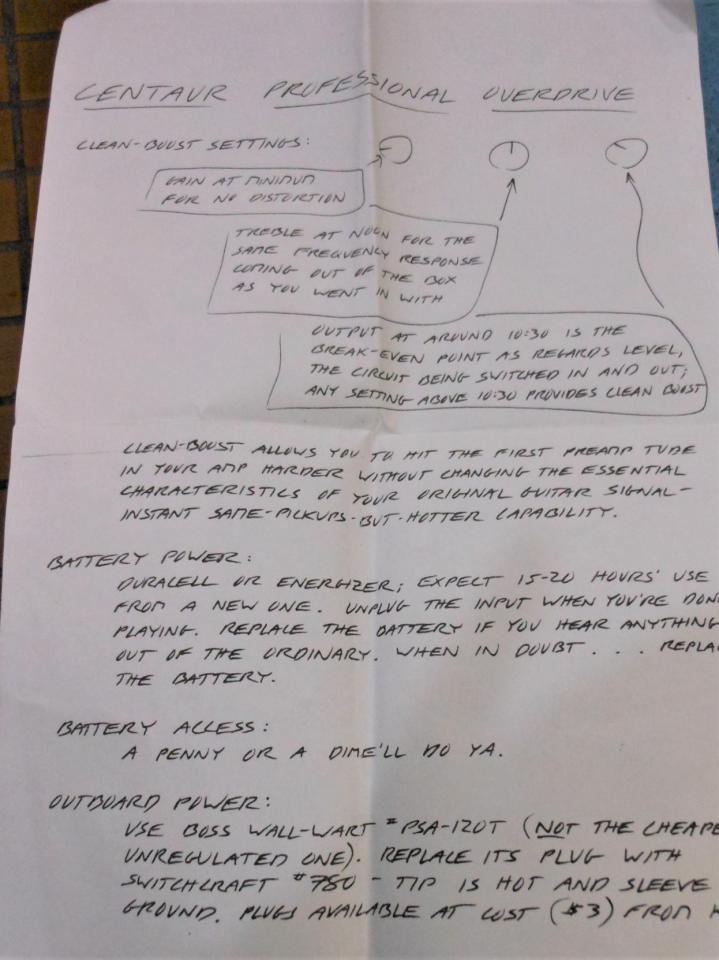 CENTAUR PROFESSIONAL OVERDRIVE
CLEAN-BOOST SETTINGS:
GAIN AT MINIMUM
FOR NO DISTORTION
TREBLE AT NOON FOR THE
SAME FREQUENCY RESPONSE
COMING OUT OF THE BOX
AS YOU WENT IN WITH
OUTPUT AT AROUND 10:30 IS THE
BREAK-EVEN POINT AS REGARDS LEVEL,
THE CIRCUIT BEING SWITCHED IN AND OUT;
ANY SETTING ABOVE 10:30 PROVIDES CLEAN BOOST
CLEAN-BOOST ALLOWS YOU TO HIT THE FIRST PREAMP TUBE
IN YOUR AMP HARDER WITHOUT CHANGING THE ESSENTIAL
CHARACTERISTICS OF YOUR ORIGINAL GUITAR SIGNAL-
INSTANT SAME-PICKUPS-BUT-HOTTER CAPABILITY.
BATTERY POWER:
DURACELL OR ENERGIZER; EXPECT 15-20 HOURS' USE
FROM A NEW ONE. UNPLUG THE INPUT WHEN YOU'RE DON
PLAYING. REPLACE THE BATTERY IF YOU HEAR ANYTHING
OUT OF THE ORDINARY. WHEN IN DOUBT . . . REPLAC
THE BATTERY.
BATTERY ACCESS:
A PENNY OR A DIME'LL DO YA.
OUTBOARD POWER:
USE BOSS WALL-WART #PSA-120T (NOT THE CHEAPE
UNREGULATED ONE). REPLACE ITS PLUG WITH
SWITCHCRAFT #780 - TIP IS HOT AND SLEEVE
GROUND. PLUGS AVAILABLE AT COST ($3) FROM